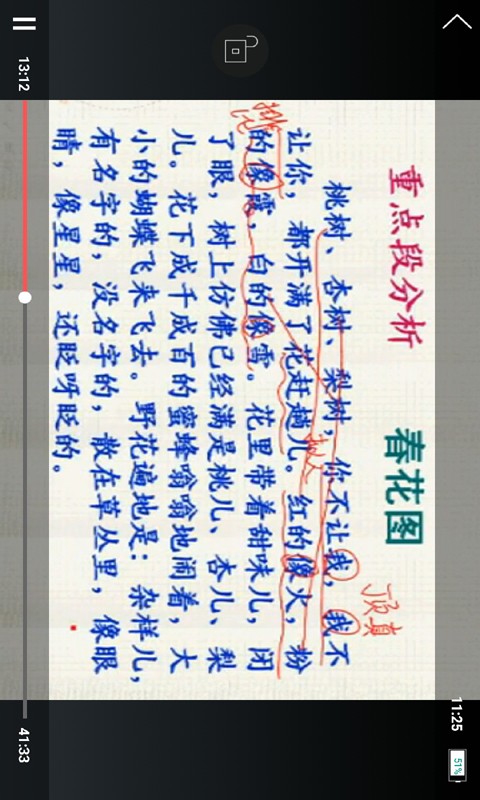 11:25 51%
重点段分析
春花图
顶真
桃树、杏树、梨树,你不让我,我不
让你,都开满了花赶趟儿。红的像火,粉
拟人
排比
的像霞,白的像雪。花里带着甜味儿,闭
了眼,树上仿佛已经满是桃儿、杏儿、梨
儿。花下成千成百的蜜蜂嗡嗡地闹着,大
小的蝴蝶飞来飞去。野花遍地是:杂样儿,
有名字的,没名字的,散在草丛里,像眼
睛,像星星,还眨呀眨的。
13:12
41:33